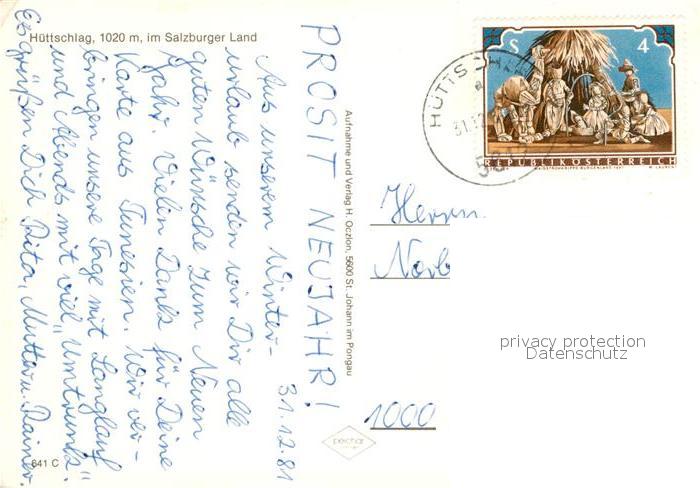 Hüttschlag, 1020 m, im Salzburger Land
PROSIT NEUJAHR!
31.12.81
Aus unserem Winter-
urlaub senden wir Dir alle
guten Wünsche zum Neuen
Jahr. Vielen Dank für Deine
Karte aus Tunesien. Wir ver-
bringen unsere Tage mit Langlauf
und Abends mit viel "Umtrunk".
Es grüßen Dich Rita, Mutter u. Rainer.
641 C
Aufnahme und Verlag H. Oczlon, 5600 St. Johann im Pongau
peichar
S 4
REPUBLIK ÖSTERREICH
HÜTTSCHLAG
31.12
Herrn
Norb
1000
privacy protection
Datenschutz